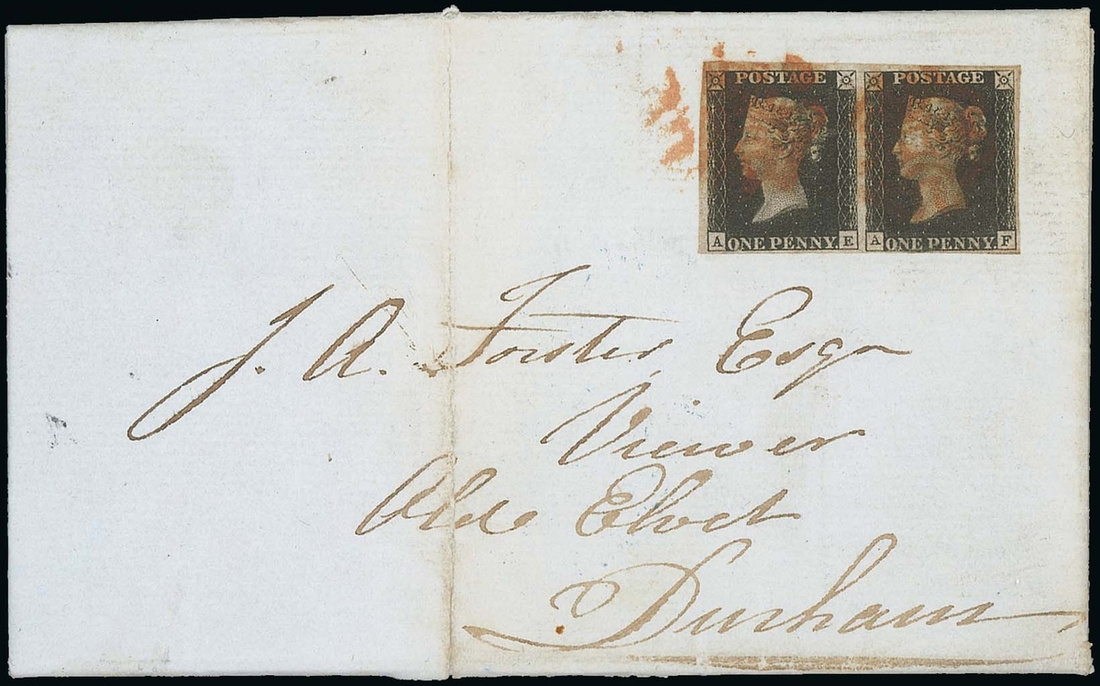 POSTAGE POSTAGE
A ONE PENNY E A ONE PENNY F
J. A. Forster, Esqr
Viewer
Old Elvet
Durham